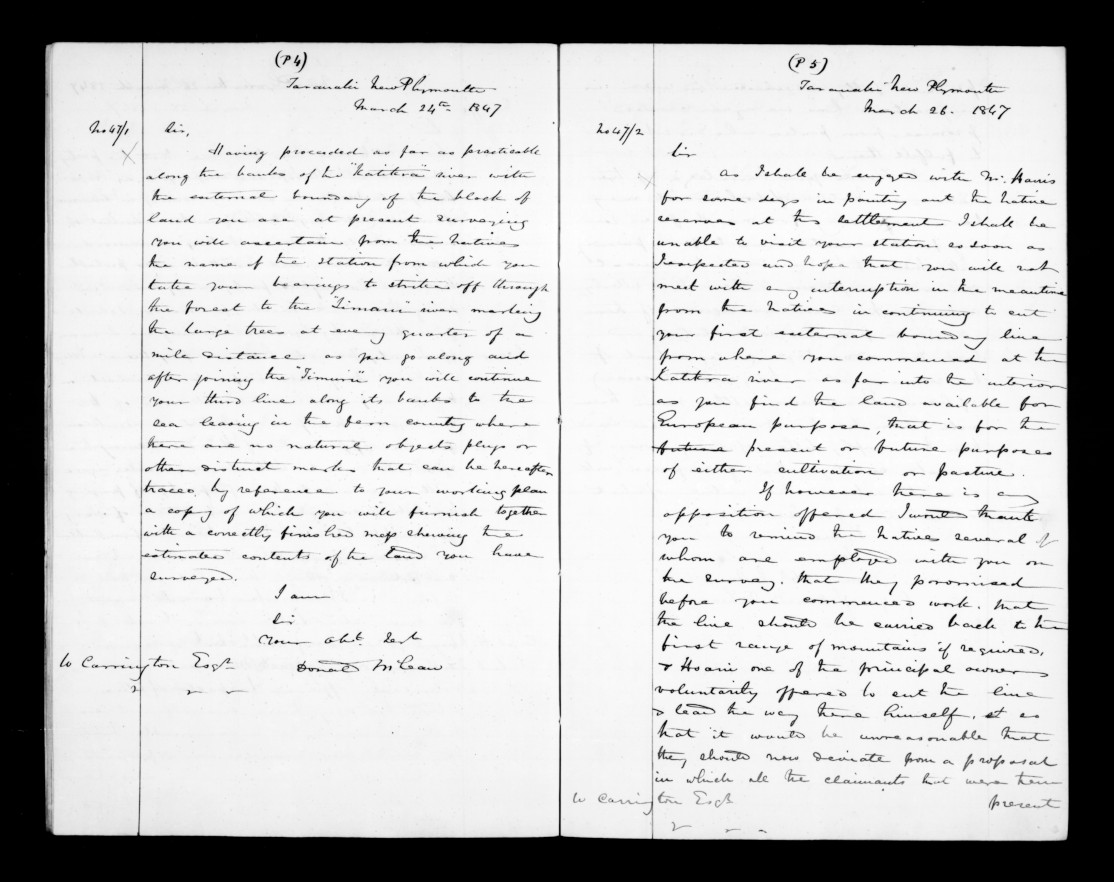 (P4)
Taranaki New Plymouth
March 24th 1847
No 47/1 Sir,
Having proceeded as far as practicable
along the banks of the "Katikara" river with
the external boundary of the block of
land you are at present surveying
you will ascertain from the Natives
the name of the station from which you
take your bearings to strike off through
the forest to the "Timaru" river marking
the large trees at every quarter of a
mile distance as you go along and
after joining the "Timaru" you will continue
your third line along its banks to the
sea leaving in the fern country where
there are no natural objects plugs or
other distinct marks that can be hereafter
traced by reference to your working plan
a copy of which you will furnish together
with a correctly finished map shewing the
estimated contents of the land you have
surveyed.
I am
Sir
Your obt. Sert
Donald McLean
W Carrington Esqr
(P5)
Taranaki New Plymouth
March 26. 1847
No 47/2
Sir
As I shall be engaged with Mr. Harris
for some days in pointing out the Native
reserves at this settlement I shall be
unable to visit your station as soon as
I expected and hope that you will not
meet with any interruption in the meantime
from the Natives in continuing to cut
your first external boundary line
from where you commenced at the
Katikara river as far into the interior
as you find the land available for
European purposes, that is for the
future present or future purposes
of either cultivation or pasture.
If however there is any
opposition offered I would thank
you to remind the Natives several of
whom are employed with you on
the survey. that they promised
before you commenced work. that
the line should be carried back to the
first range of mountains if required,
& one of the principal owners
voluntarily offered to cut the line
& lead the way there himself. so
that it would be unreasonable that
they should now deviate from a proposal
in which all the claimants that were then
W Carrington Esqr present